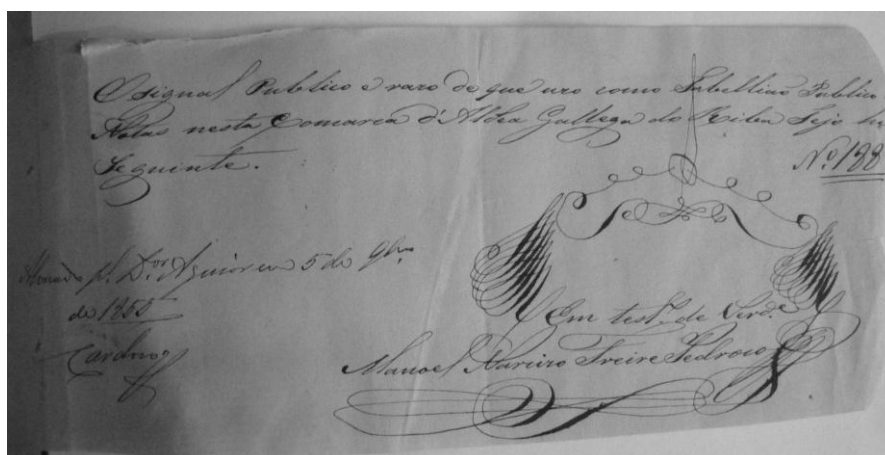 O signal Publico e razo de que uso como Tabellião Publico
Notas nesta Comarca d'Aldea Gallega do Riba Tejo he
Seguinte.
Nº 188
Dor Aguiar em 5 de 9bro
de 1855
Cardozo
Em testo de Verde
Manoel Freire Pedrozo